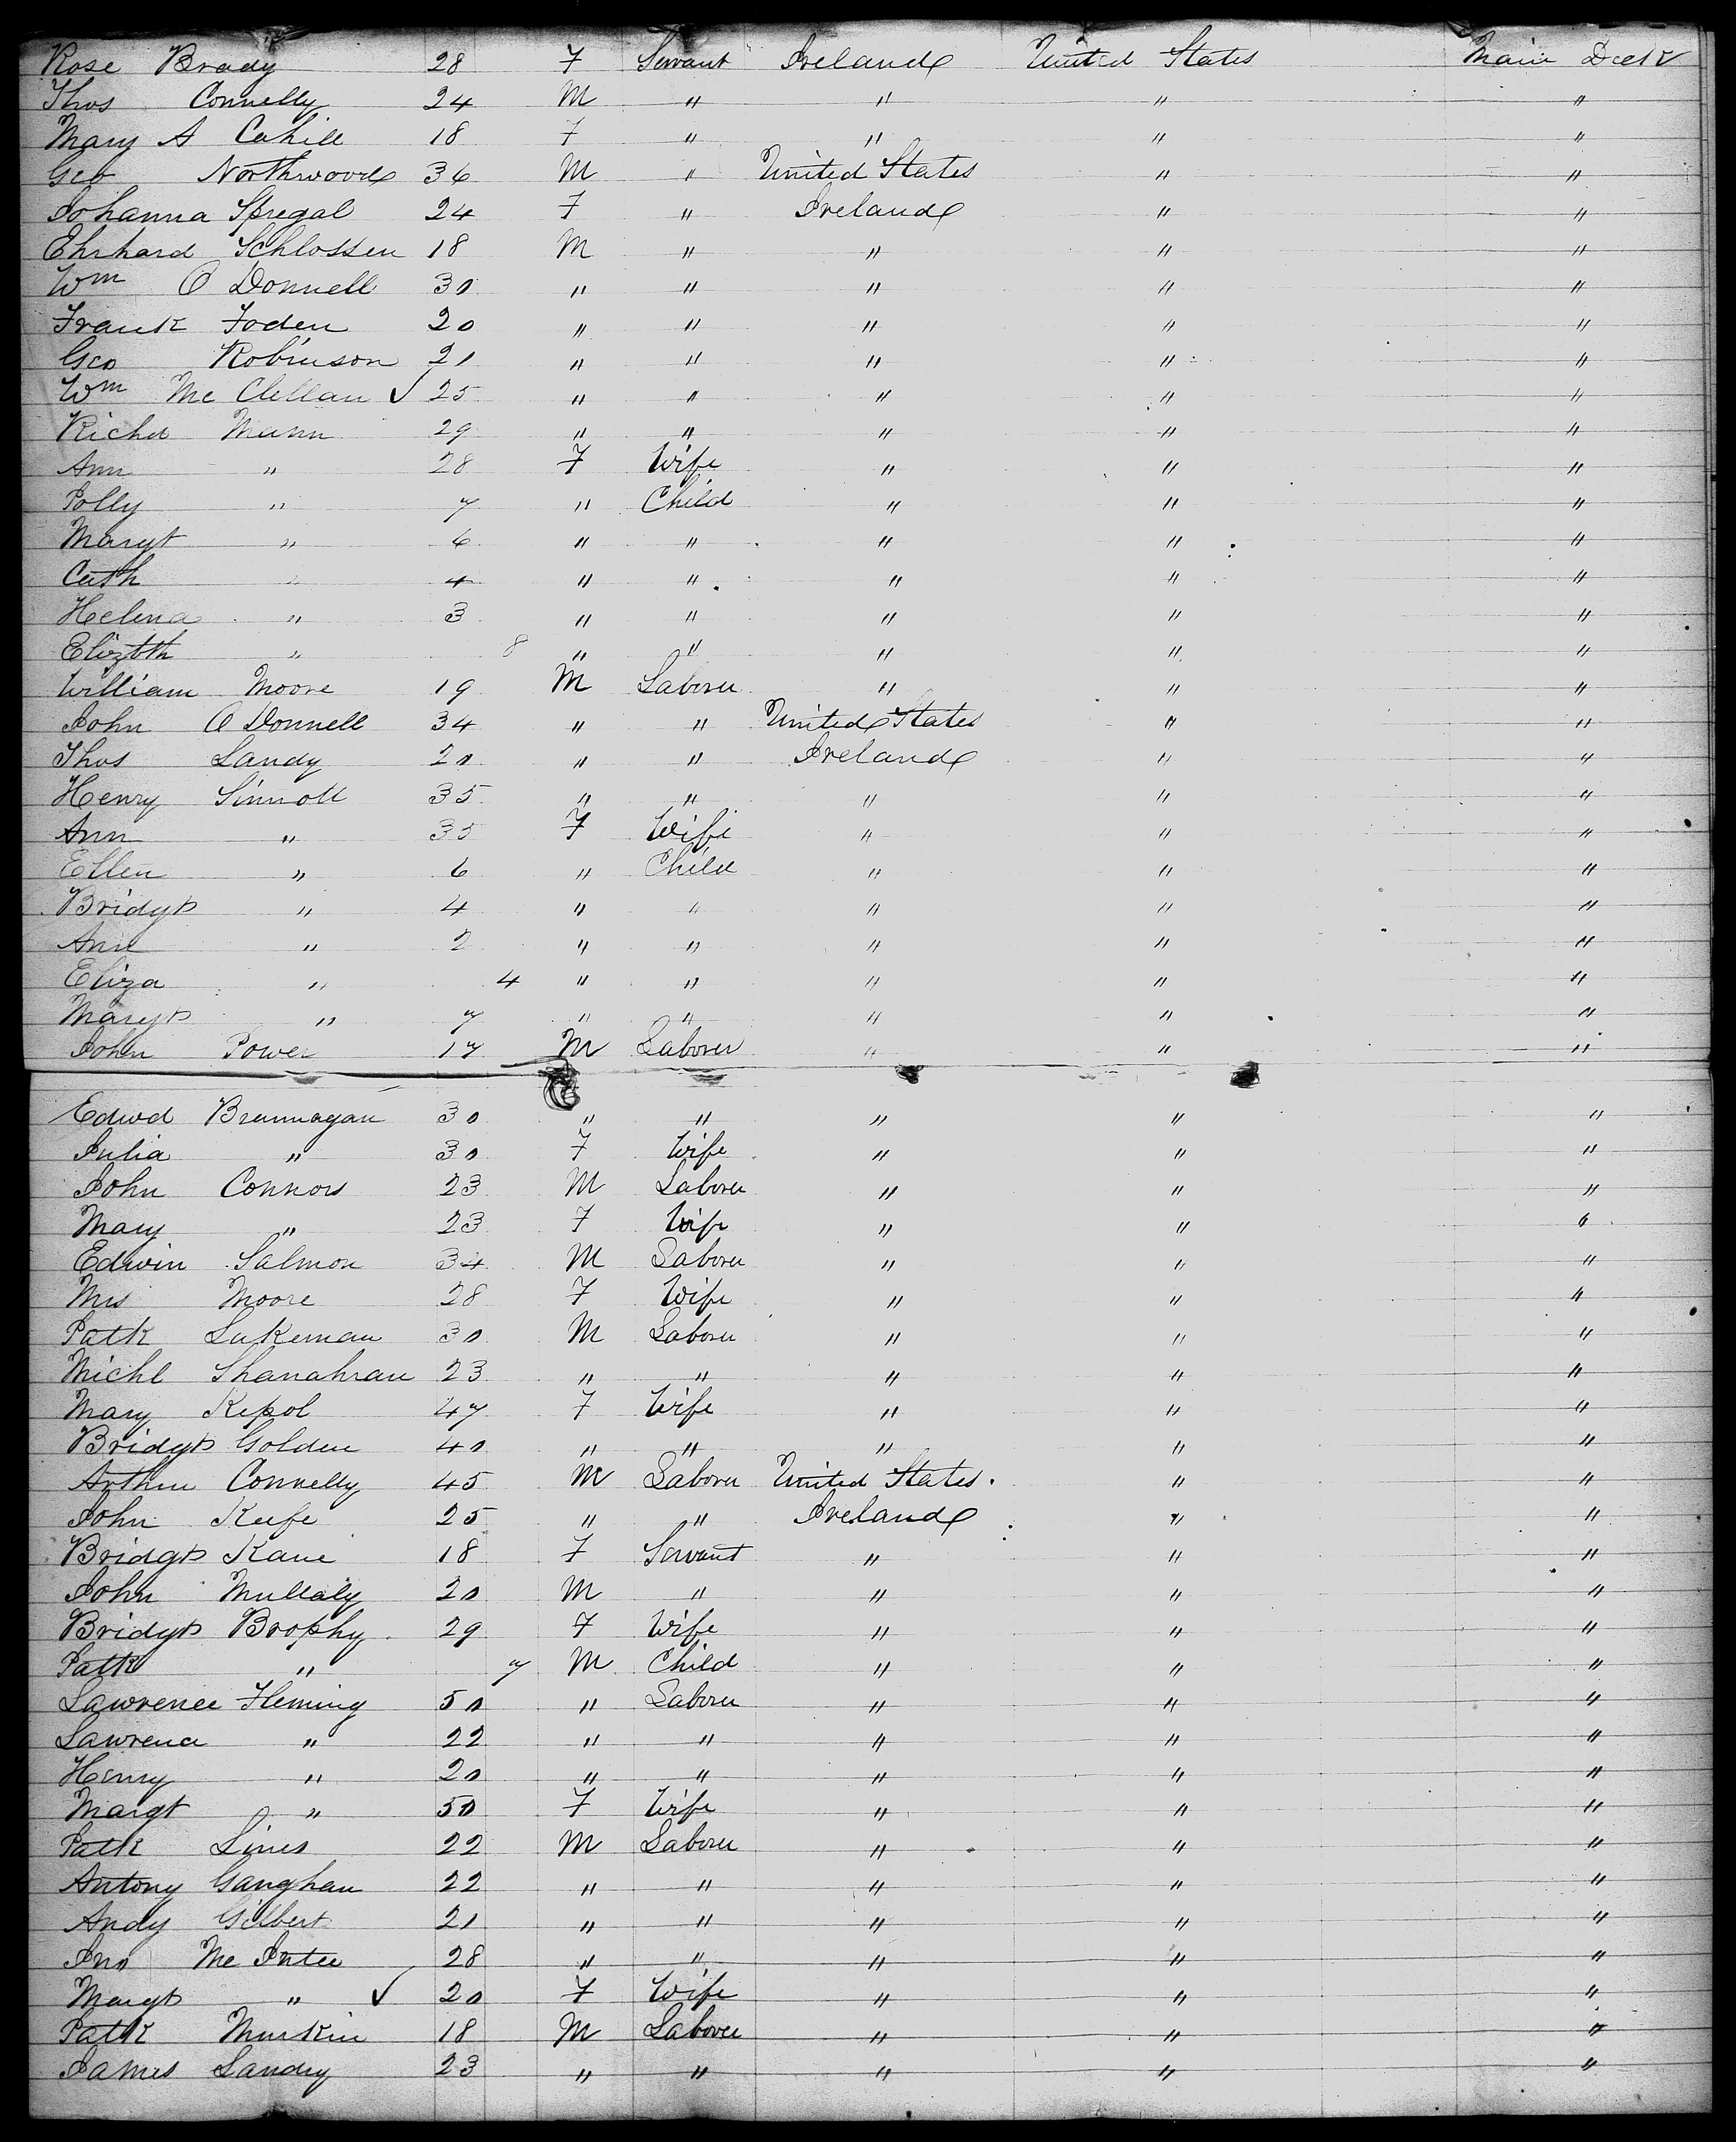 Rose Brady 28 F Servant Ireland United States Main Deck
Thos Connelly 24 M " " " "
Mary A Cahill 18 F " " " "
Geo Northwood 36 M " United States " "
Johanna Spregal 24 F " Ireland " "
Ehrhard Schlossen 18 M " " " "
Wm O Donnell 30 " " " " "
Frank Foden 20 " " " " "
Geo Robinson 21 " " " " "
Wm Mc Clellan ✓ 25 " " " " "
Richd Mann 29 " " " " "
Ann " 28 F Wife " " "
Polly " 7 " Child " " "
Margt " 6 " " " " "
Cath " 4 " " " " "
Helena " 3 " " " " "
Elizbth " 8 " " " " "
William Moore 19 M Laborer " " "
John O Donnell 34 " " United States " "
Thos Landy 20 " " Ireland " "
Henry Sinnott 35 " " " " "
Ann " 35 F Wife " " "
Ellen " 6 " Child " " "
Bridgt " 4 " " " " "
Ann " 2 " " " " "
Eliza " 4 " " " " "
Margt " 7 " " " " "
John Power 17 M Laborer " " "
Edwd Brannagan 30 " " " " "
Julia " 30 F Wife " " "
John Connors 23 M Laborer " " "
Mary " 23 F Wife " " "
Edwin Salmon 34 M Laborer " " "
Mrs Moore 28 F Wife " " "
Patk Lukeman 30 M Laborer " " "
Michl Shanahran 23 " " " " "
Mary Kepol 47 F Wife " " "
Bridgt Golden 40 " " " " "
Arthur Connelly 45 M Laborer United States " "
John Keefe 25 " " Ireland " "
Bridgt Kane 18 F Servant " " "
John Mullaly 20 M " " " "
Bridgt Brophy 29 F Wife " " "
Patk " 7 M Child " " "
Lawrence Fleming 50 " Laborer " " "
Lawrence " 22 " " " " "
Henry " 20 " " " " "
Margt " 50 F Wife " " "
Patk Lines 22 M Laborer " " "
Antony Ganghan 22 " " " " "
Andy Gilbert 21 " " " " "
Jno Mc Intee 28 " " " " "
Margt " ✓ 20 F Wife " " "
Patk Murkin 18 M Laborer " " "
James Landry 23 " " " " "